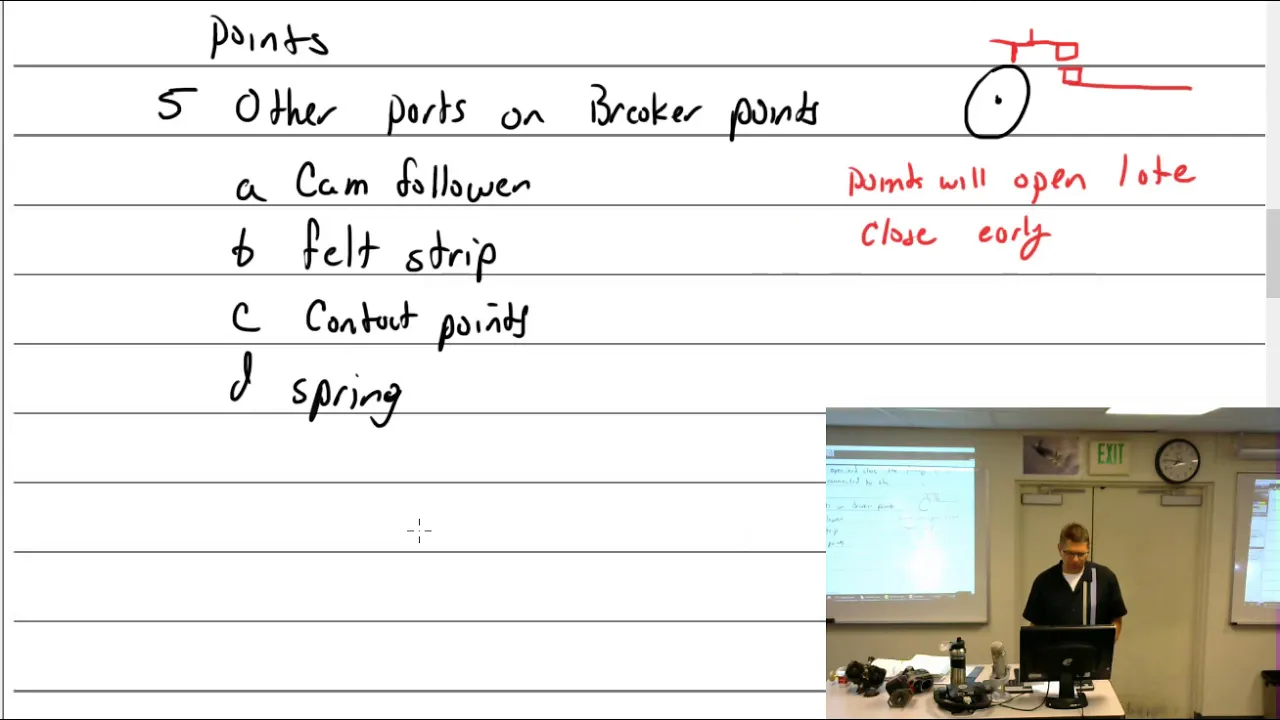 points
5 Other parts on Breaker points
a Cam follower
b felt strip
c Contact points
d spring
points will open late
close early
EXIT